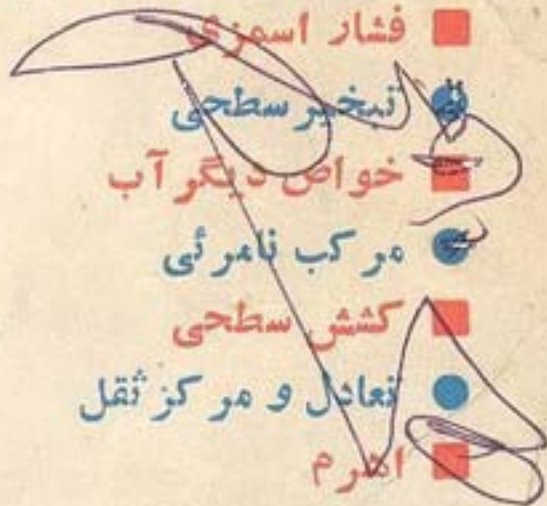 فشار اسمزی
تبخیر سطحی
خواص دیگر آب
مرکب نامرئی
کشش سطحی
تعادل و مرکز ثقل
اهرم